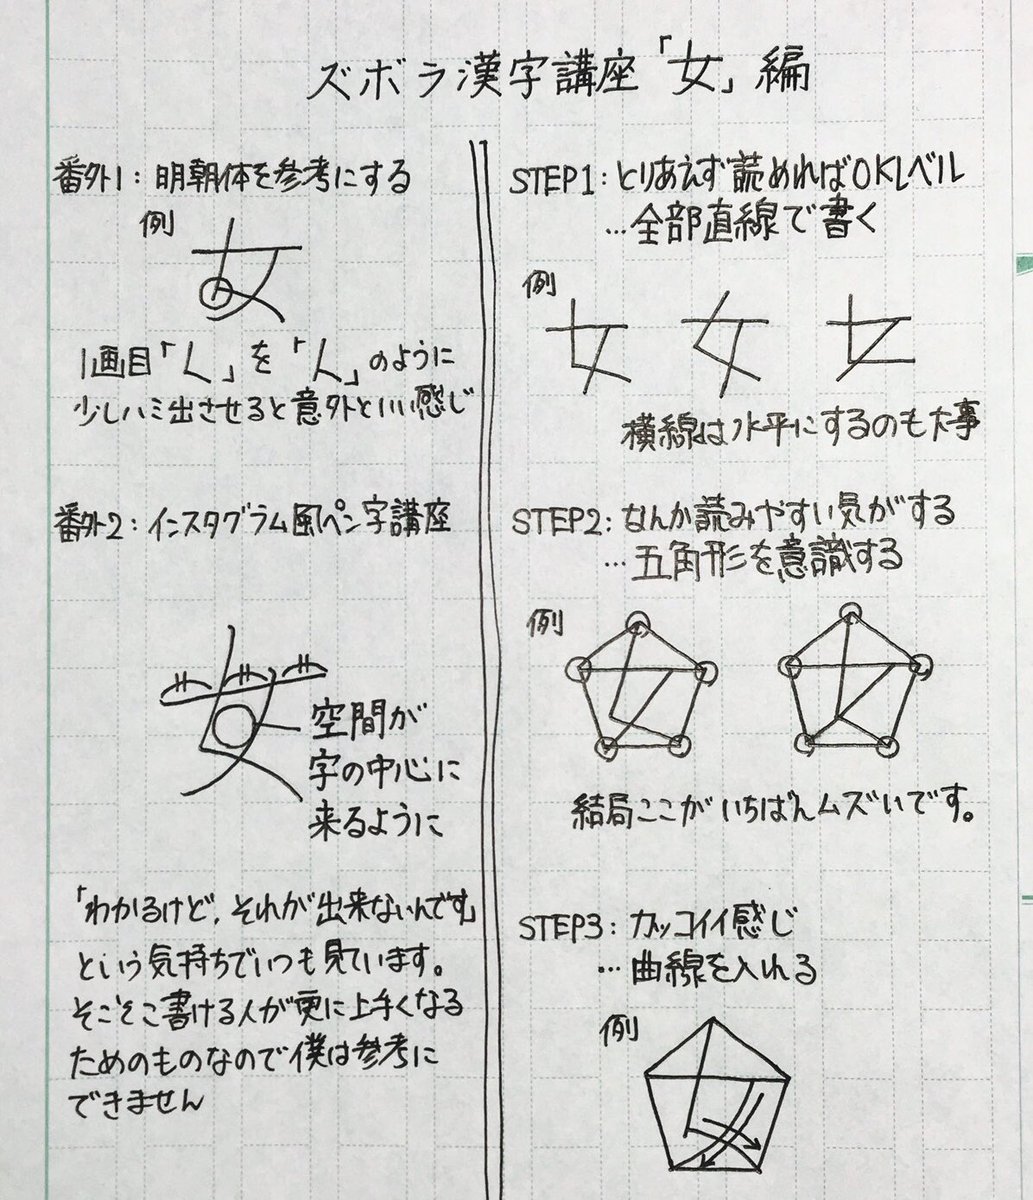 ズボラ漢字講座「女」編
STEP1：とりあえず読めればOKレベル
…全部直線で書く
例
女 女 女
横線は水平にするのも大事
STEP2：なんか読みやすい気がする
…五角形を意識する
例
結局ここがいちばんムズいです。
STEP3：カッコイイ感じ
…曲線を入れる
例
番外1：明朝体を参考にする
例
女
1画目「く」を「人」のように
少しハミ出させると意外といい感じ
番外2：インスタグラム風ペン字講座
女
空間が
字の中心に
来るように
「わかるけど、それが出来ないんです」
という気持ちでいつも見ています。
そこそこ書ける人が更に上手くなる
ためのものなので僕は参考に
できません